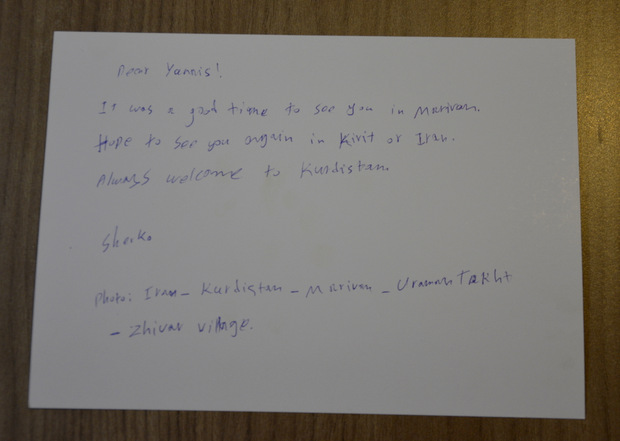 Dear Yannis!
It was a good time to see you in Marivan.
Hope to see you again in Kirit or Iran.
Always welcome to Kurdistan.
Sherko
Photo: Iran - Kurdistan - Marivan - Uraman Takht
- Zhivar village.